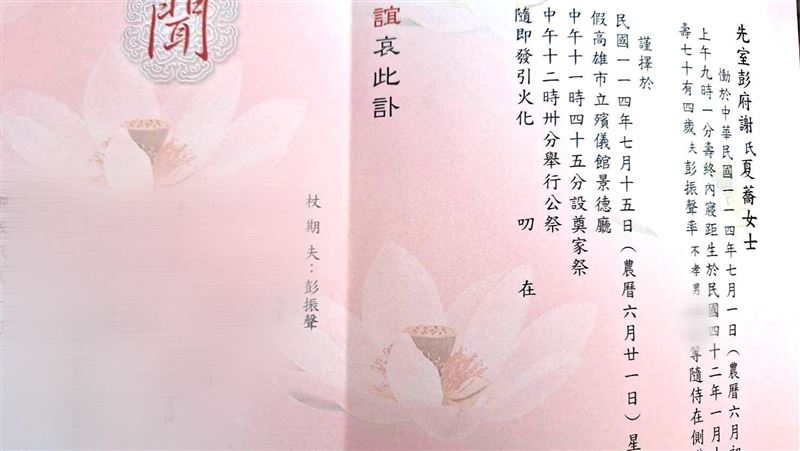 先室彭府謝氏夏蕎女士
慟於中華民國一一四年七月一日（農曆六月初
上午九時一分壽終內寢距生於民國四十二年一月十
壽七十有四歲 夫彭振聲率 不孝男 等隨侍在側
謹擇於
民國一一四年七月十五日（農曆六月廿一日）星
假高雄市立殯儀館景德廳
中午十一時四十五分設奠家祭
中午十二時卅分舉行公祭
隨即發引火化 叨 在
誼哀此訃
杖期夫：彭振聲
聞